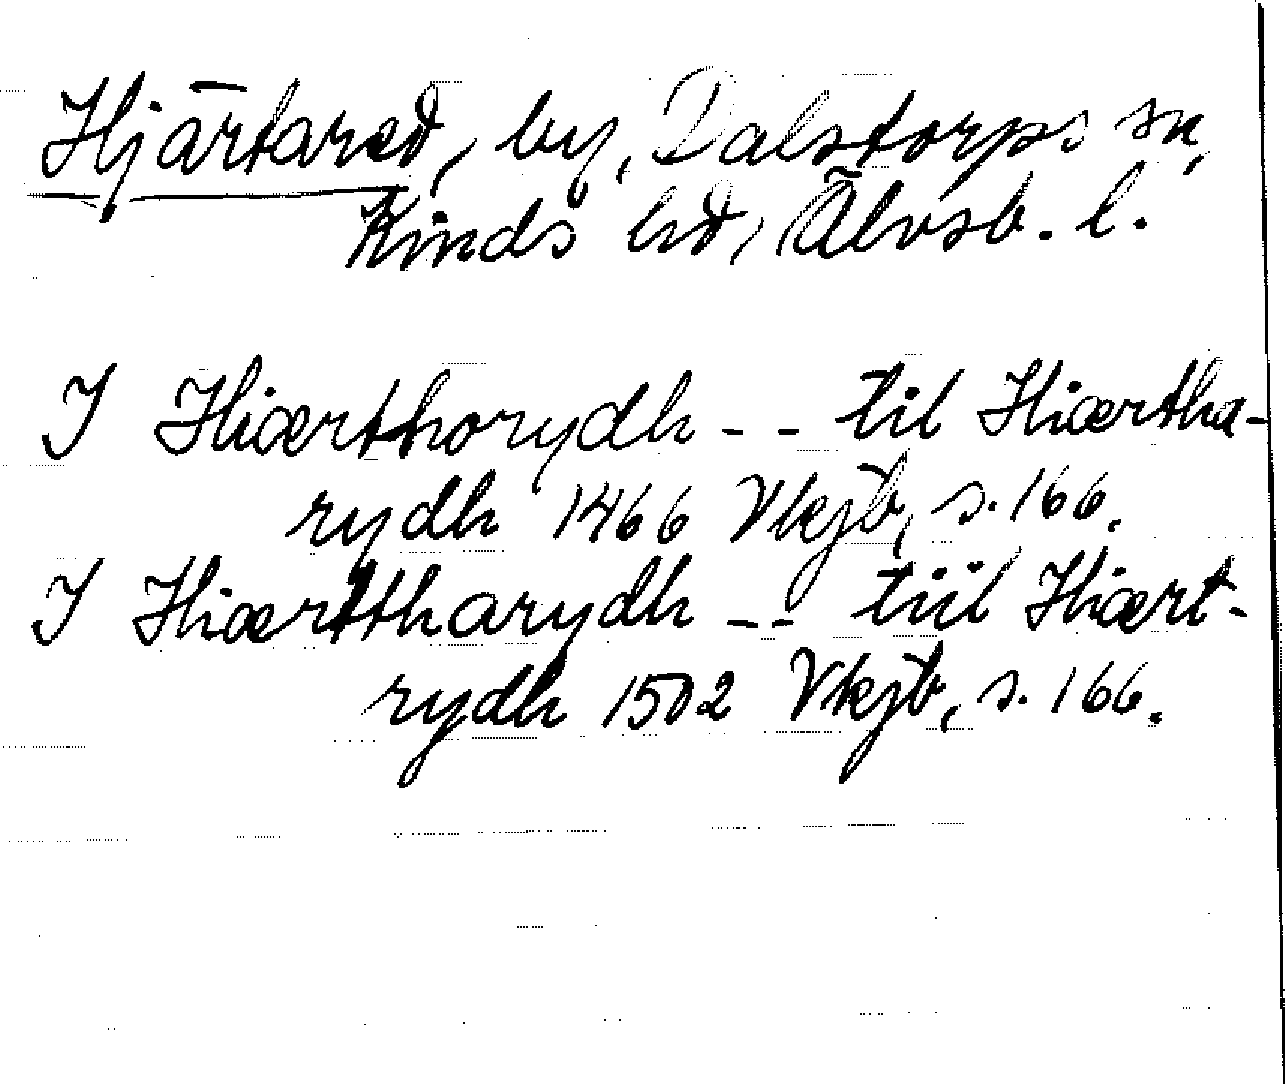 Hjärtared, by, Dalstorps sn,
Kinds hd, Älvsb. l.
I Hiærthorydh - - til Hiærtha-
rydh 1466 Vkjb, s. 166.
I Hiærttharydh - - tiil Hiært-
rydh 1502 Vkjb, s. 166.